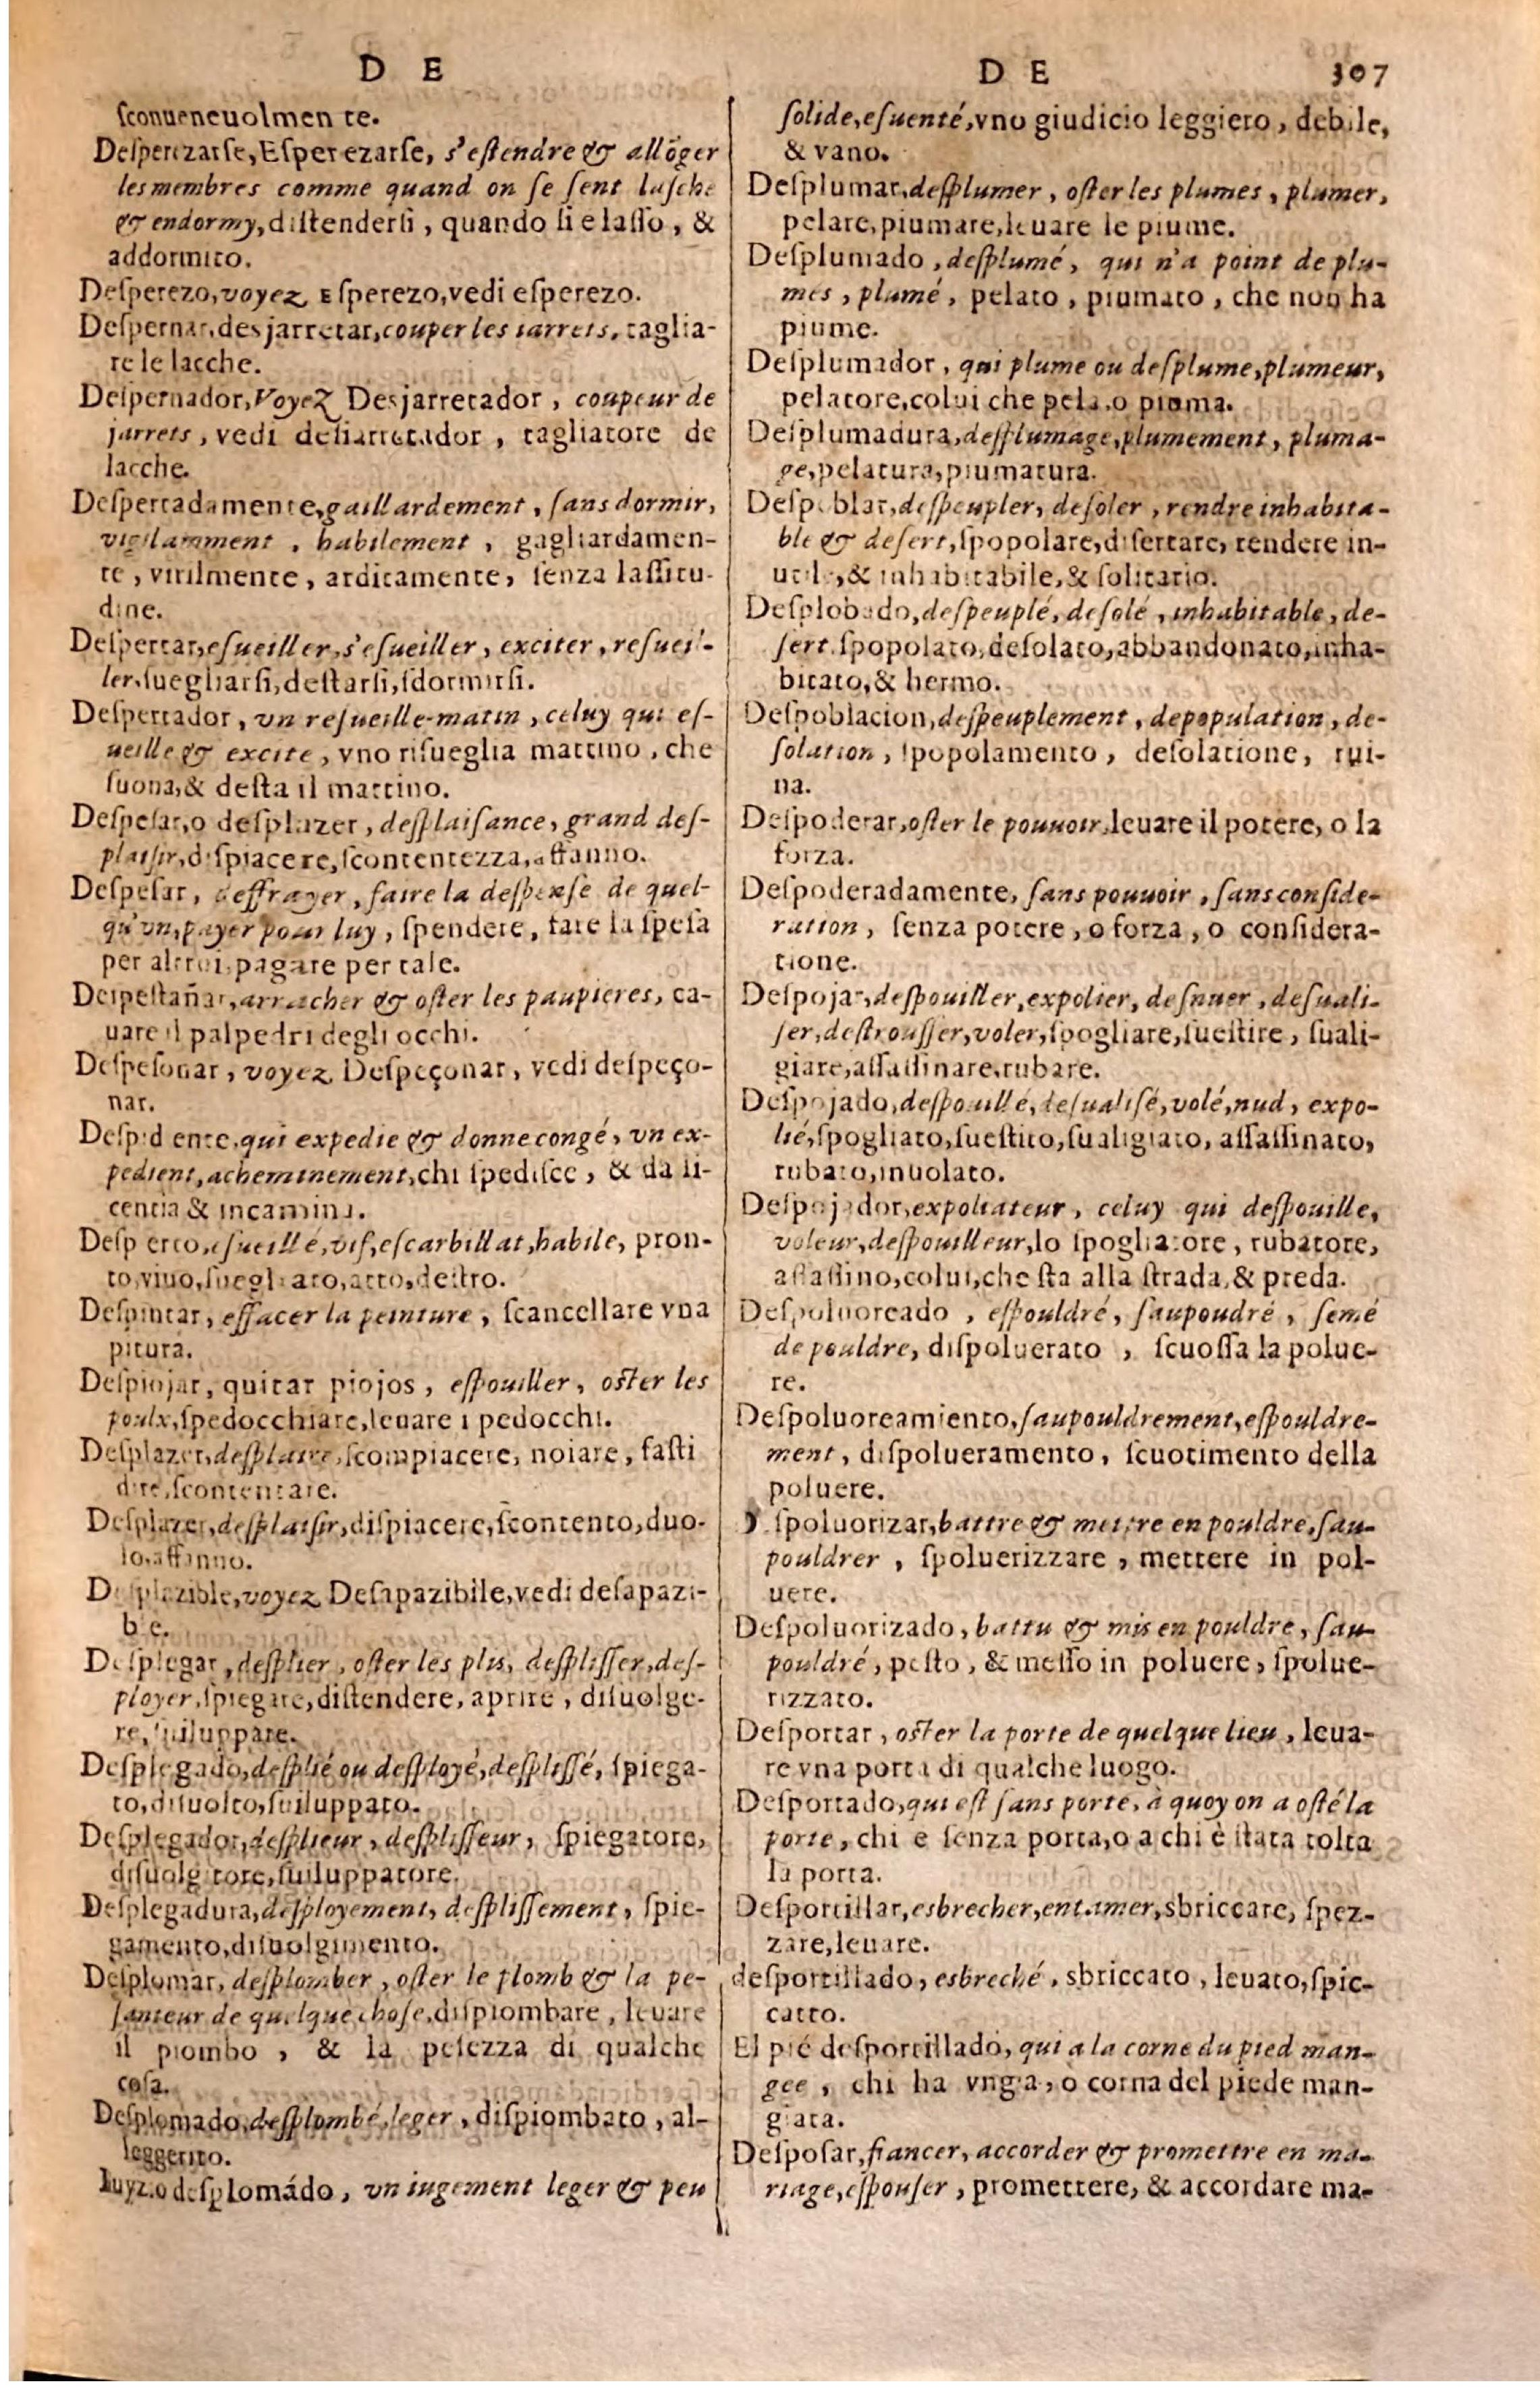 D E
ſconueneuolmen te.
Deſperezarſe, Eſperezarſe, s'eſtendre & allõger
les membres comme quand on ſe ſent laſche
& endormy, diſtenderſi, quando ſi e laſſo, &
addormito.
Deſperezo, voyez Eſperezo, vedi eſperezo.
Deſpernar, desjarretar, couper les iarrets, taglia-
re le lacche.
Deſpernador, Voyez Desjarretador, coupeur de
jarrets, vedi desiarretador, tagliatore de
lacche.
Deſpertadamente, gaillardement, ſans dormir,
vigilamment, habilement, gagliardamen-
te, virilmente, arditamente, ſenza laſſitu-
dine.
Deſpertar, eſueiller, s'eſueiller, exciter, reſueil-
ler, ſuegliarſi, deſtarſi, ſdormirſi.
Deſpertador, vn reſueille-matin, celuy qui eſ-
ueille & excite, vno riſueglia mattino, che
ſuona, & deſta il mattino.
Deſpeſar, o deſplazer, deſplaiſance, grand deſ-
plaiſir, diſpiacere, ſcontentezza, affanno.
Deſpeſar, deffrayer, faire la deſpenſe de quel-
qu'vn, payer pour luy, ſpendere, fare la ſpeſa
per altrui, pagare per tale.
Deſpeſtañar, arracher & oſter les paupieres, ca-
uare il palpedri degli occhi.
Deſpeſonar, voyez Deſpeçonar, vedi deſpeço-
nar.
Deſpid ente, qui expedie & donne congé, vn ex-
pedient, acheminement, chi ſpediſce, & da li-
centia & incamina.
Deſp erto, eſueillé, vif, eſcarbillat, habile, pron-
to, viuo, ſuegliato, atto, deſtro.
Deſpintar, effacer la peinture, ſcancellare vna
pitura.
Deſpiojar, quitar piojos, eſpouiller, oſter les
poulx, ſpedocchiare, leuare i pedocchi.
Deſplazer, deſplaire, ſcompiacere, noiare, faſti
dire, ſcontentare.
Deſplazer, deſplaiſir, diſpiacere, ſcontento, duo-
lo, affanno.
Deſplazible, voyez Deſapazibile, vedi deſapazi-
ble.
Deſplegar, deſplier, oſter les plis, deſpliſſer, deſ-
ployer, ſpiegare, diſtendere, aprire, diſuolge-
re, ſuiluppare.
Deſplegado, deſplié ou deſployé, deſpliſſé, ſpiega-
to, diſuolto, ſuiluppato.
Deſplegador, deſplieur, deſpliſſeur, ſpiegatore,
diſuolgitore, ſuiluppatore.
Deſplegadura, deſployement, deſpliſſement, ſpie-
gamento, diſuolgimento.
Deſplomar, deſplomber, oſter le plomb & la pe-
ſanteur de quelque choſe, diſpiombare, leuare
il piombo, & la peſezza di qualche
coſa.
Deſplomado, deſplombé, leger, diſpiombato, al-
leggerito.
Iuyzio deſplomádo, vn iugement leger & peu
D E 307
ſolide, eſuenté, vno giudicio leggiero, debile,
& vano.
Deſplumar, deſplumer, oſter les plumes, plumer,
pelare, piumare, leuare le piume.
Deſplumado, deſplumé, qui n'a point de plu-
mes, plumé, pelato, piumato, che non ha
piume.
Deſplumador, qui plume ou deſplume, plumeur,
pelatore, colui che pela, o piuma.
Deſplumadura, deſplumage, plumement, pluma-
ge, pelatura, piumatura.
Deſpoblar, deſpeupler, deſoler, rendre inhabita-
ble & deſert, ſpopolare, diſertare, rendere in-
utile, & inhabitabile, & ſolitario.
Deſplobado, deſpeuplé, deſolé, inhabitable, de-
ſert, ſpopolato, deſolato, abbandonato, inha-
bitato, & hermo.
Deſpoblacion, deſpeuplement, depopulation, de-
ſolation, ſpopolamento, deſolatione, rui-
na.
Deſpoderar, oſter le pouuoir, leuare il potere, o la
forza.
Deſpoderadamente, ſans pouuoir, ſans conſide-
ration, ſenza potere, o forza, o conſidera-
tione.
Deſpojar, deſpouiller, expolier, deſnuer, deſuali-
ſer, deſtrouſſer, voler, ſpogliare, ſueſtire, ſuali-
giare, aſſaſſinare, rubare.
Deſpojado, deſpouillé, deſualiſé, volé, nud, expo-
lié, ſpogliato, ſueſtito, ſualigiato, aſſaſſinato,
rubato, inuolato.
Deſpojador, expoliateur, celuy qui deſpouille,
voleur, deſpouilleur, lo ſpogliatore, rubatore,
aſſaſſino, colui, che ſta alla ſtrada, & preda.
Deſpoluoreado, eſpouldré, ſaupoudré, ſemé
de pouldre, diſpoluerato, ſcuoſſa la polue-
re.
Deſpoluoreamiento, ſaupouldrement, eſpouldre-
ment, diſpolueramento, ſcuotimento della
poluere.
D ſpoluorizar, battre & mettre en pouldre, ſau-
pouldrer, ſpoluerizzare, mettere in pol-
uere.
Deſpoluorizado, battu & mis en pouldre, ſau-
pouldré, peſto, & meſſo in poluere, ſpolue-
rizzato.
Deſportar, oſter la porte de quelque lieu, leua-
re vna porta di qualche luogo.
Deſportado, qui eſt ſans porte, à quoy on a oſté la
porte, chi e ſenza porta, o a chi è ſtata tolta
la porta.
Deſportillar, esbrecher, entamer, sbriccare, ſpez-
zare, leuare.
deſportillado, esbreché, sbriccato, leuato, ſpic-
catto.
El pié deſportillado, qui a la corne du pied man-
gee, chi ha vngia, o corna del piede man-
giata.
Deſpoſar, fiancer, accorder & promettre en ma-
riage, eſpouſer, promettere, & accordare ma-